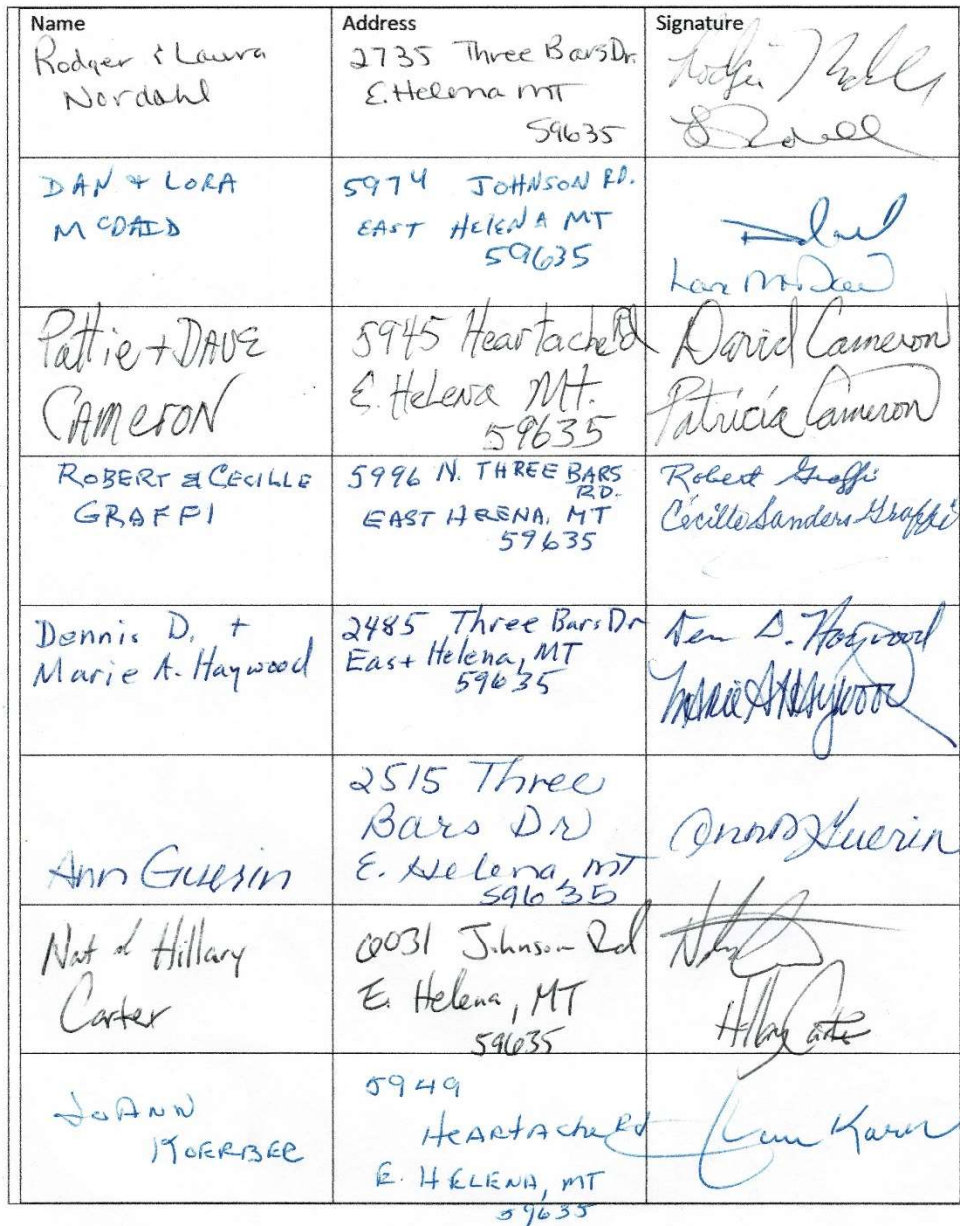 Name
Address
Signature
Rodger & Laura
Nordahl
2735 Three Bars Dr.
E. Helena MT
59635
DAN & LORA
MCDAID
5974 JOHNSON RD.
EAST HELENA MT
59635
Pattie + DAVE
CAMERON
5945 Heartache Rd
E. Helena Mt.
59635
David Cameron
Patricia Cameron
ROBERT & CECILLE
GRAFFI
5996 N. THREE BARS
RD.
EAST HELENA, MT
59635
Robert Graffi
Cecille Sanders Graffi
Dennis D. +
Marie A. Haywood
2485 Three Bars Dr
East Helena, MT
59635
D. Haywood
Marie A Haywood
Ann Guerin
2515 Three
Bars Dr
E. Helena, MT
59635
Guerin
Nat & Hillary
Carter
6031 Johnson Rd
E. Helena, MT
59635
Hillary Carter
JoANN
KOERBER
5949
HEARTACHE Rd
E. HELENA, MT
59635